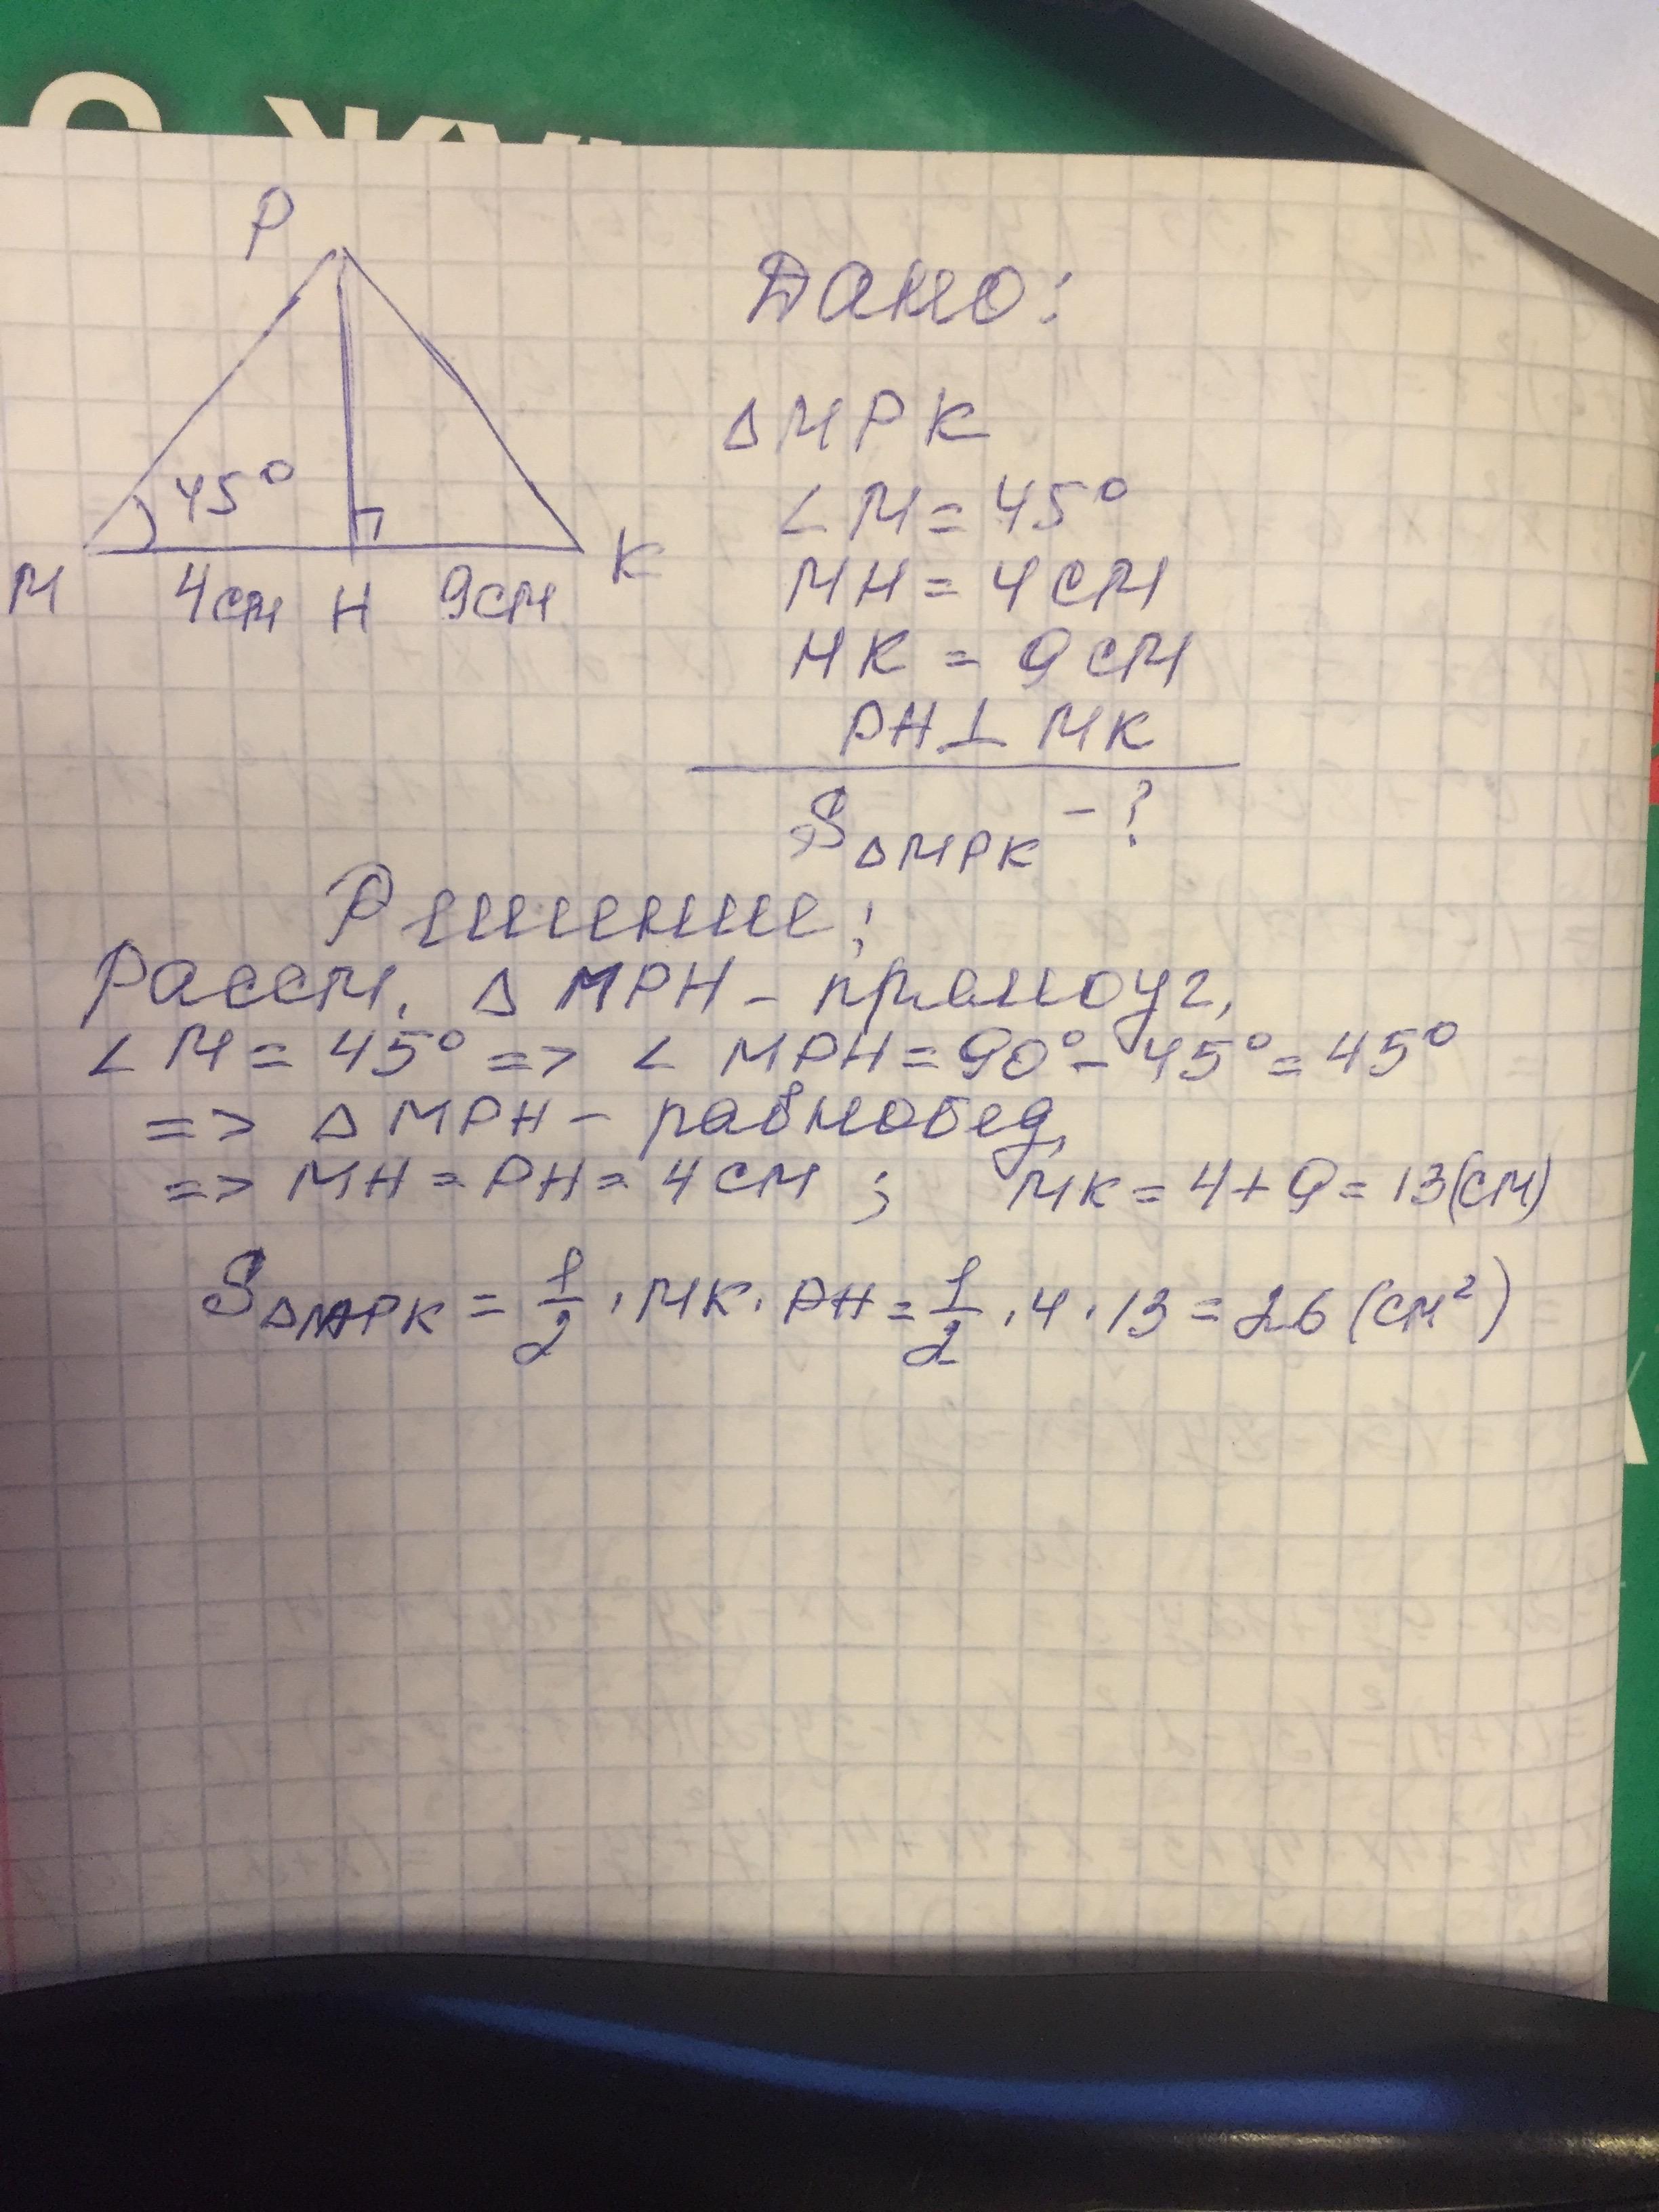 P
45°
M 4см H 9см K
Дано:
△MPK
∠M = 45°
MH = 4см
HK = 9см
PH ⊥ MK
S△MPK - ?
Решение:
Рассм. △MPH - прямоуг.
∠M = 45° => ∠MPH = 90° - 45° = 45°
=> △MPH - равнобед.
=> MH = PH = 4см ; MK = 4+9 = 13(см)
S△MPK = 1/2 · MK · PH = 1/2 · 4 · 13 = 26 (см²)